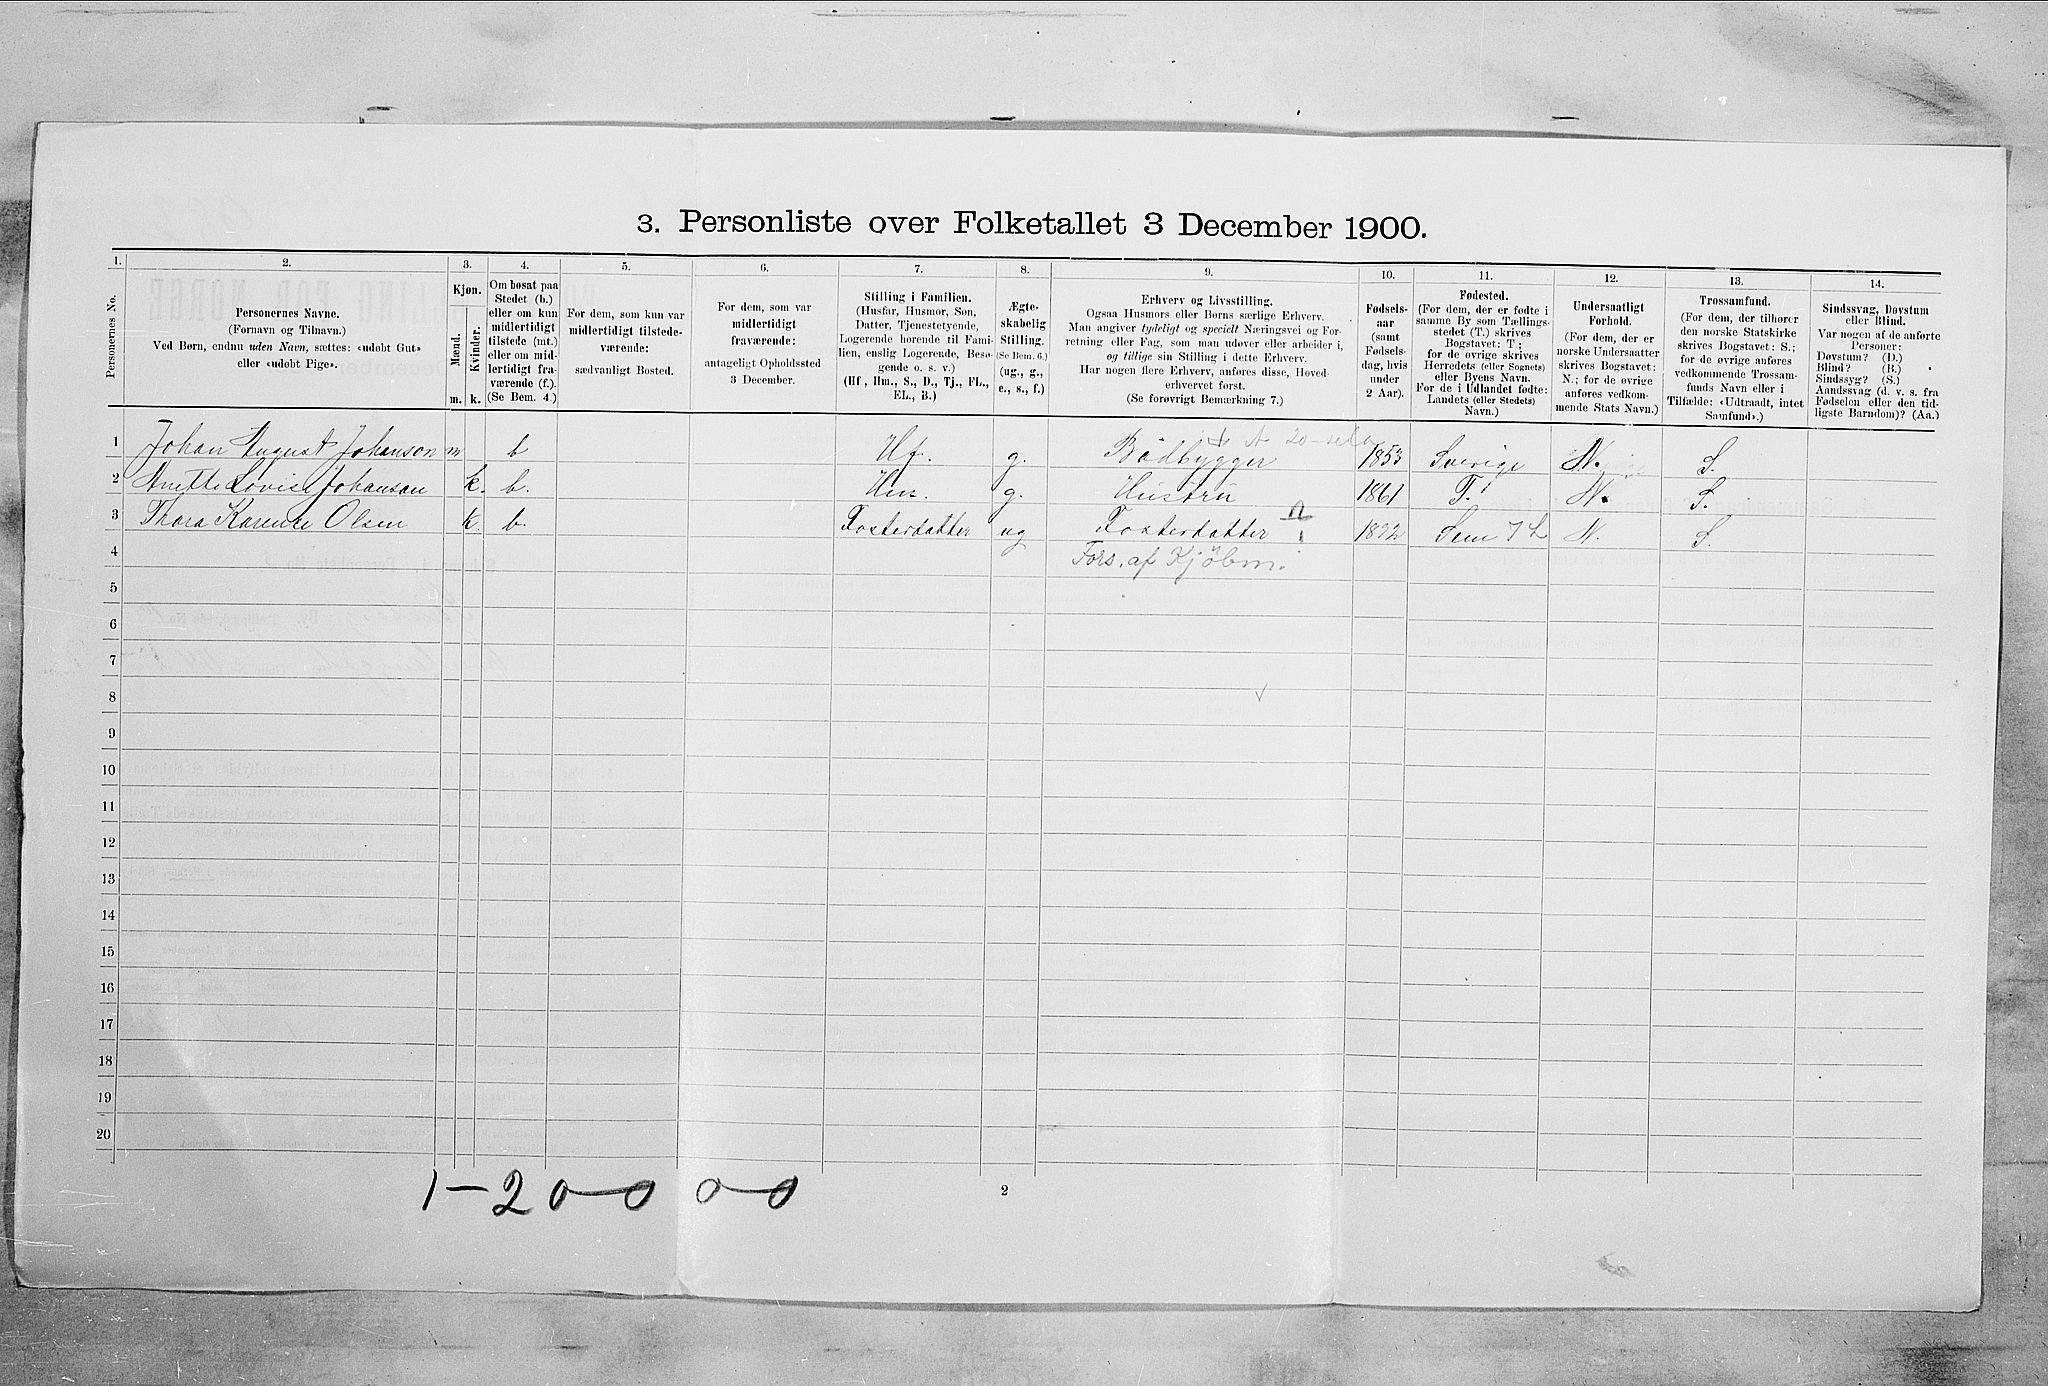 3. Personliste over Folketallet 3 December 1900.
1. 2. 3. 4. 5. 6. 7. 8. 9. 10. 11. 12. 13. 14.
Personernes No.
Personernes Navne.
(Fornavn og Tilnavn.)
Ved Børn, endnu uden Navn, sættes: «udøbt Gut»
eller «udøbt Pige».
Kjøn.
Mænd.
Kvinder.
m. k.
Om bosat paa
Stedet (b.)
eller om kun
midlertidigt
tilstede (mt.)
eller om mid-
lertidigt fra-
værende (f.).
(Se Bem. 4.)
For dem, som kun var
midlertidigt tilstede-
værende:
sædvanligt Bosted.
For dem, som var
midlertidigt
fraværende:
antageligt Opholdssted
3 December.
Stilling i Familien.
(Husfar, Husmor, Søn,
Datter, Tjenestetyende,
Logerende hørende til Fami-
lien, enslig Logerende, Besø-
gende o. s. v.)
(Hf., Hm., S., D., Tj., FL.,
EL., B.)
Ægte-
skabelig
Stilling.
(Se Bem. 6.)
(ug., g.,
e., s., f.)
Erhverv og Livsstilling.
Ogsaa Husmors eller Børns særlige Erhverv.
Man angiver tydeligt og specielt Næringsvei og For-
retning eller Fag, som man udøver eller arbeider i,
og tillige sin Stilling i dette Erhverv.
Har nogen flere Erhverv, anføres disse, Hoved-
erhvervet først.
(Se forøvrigt Bemærkning 7.)
Fødsels-
aar
(samt
Fødsels-
dag, hvis
under
2 Aar).
Fødested.
(For dem, der er fødte i
samme By som Tællings-
stedet (T.) skrives
Bogstavet: T;
for de øvrige skrives
Herredets (eller Sognets)
eller Byens Navn.
For de i Udlandet fødte:
Landets (eller Stedets)
Navn.)
Undersaatligt
Forhold.
(For dem, der er
norske Undersaatter
skrives Bogstavet:
N.; for de øvrige
anføres vedkom-
mende Stats Navn.)
Trossamfund.
(For dem, der tilhører
den norske Statskirke
skrives Bogstavet: S.;
for de øvrige anføres
vedkommende Trossam-
funds Navn eller i
Tilfælde: «Udtraadt, intet
Samfund».)
Sindssvag, Døvstum
eller Blind.
Var nogen af de anførte
Personer:
Døvstum? (D.)
Blind? (B.)
Sindssyg? (S.)
Aandssvag (d. v. s. fra
Fødselen eller den tid-
ligste Barndom)? (Aa.)
1 Johan August Johanson m b Hf. g. Bådbygger 1853 Sverige N. S.
2 Anette Lovise Johanson k. b. Hm. g. Hustru 1861 T. N. S.
3 Thora Karence Olsen k. b. Fosterdatter ug Fosterdatter 1892 Sem J L N. S.
4 Fors. af Kjöbm.
5
6
7
8
9
10
11
12
13
14
15
16
17
18
19
20
1-200 00
2